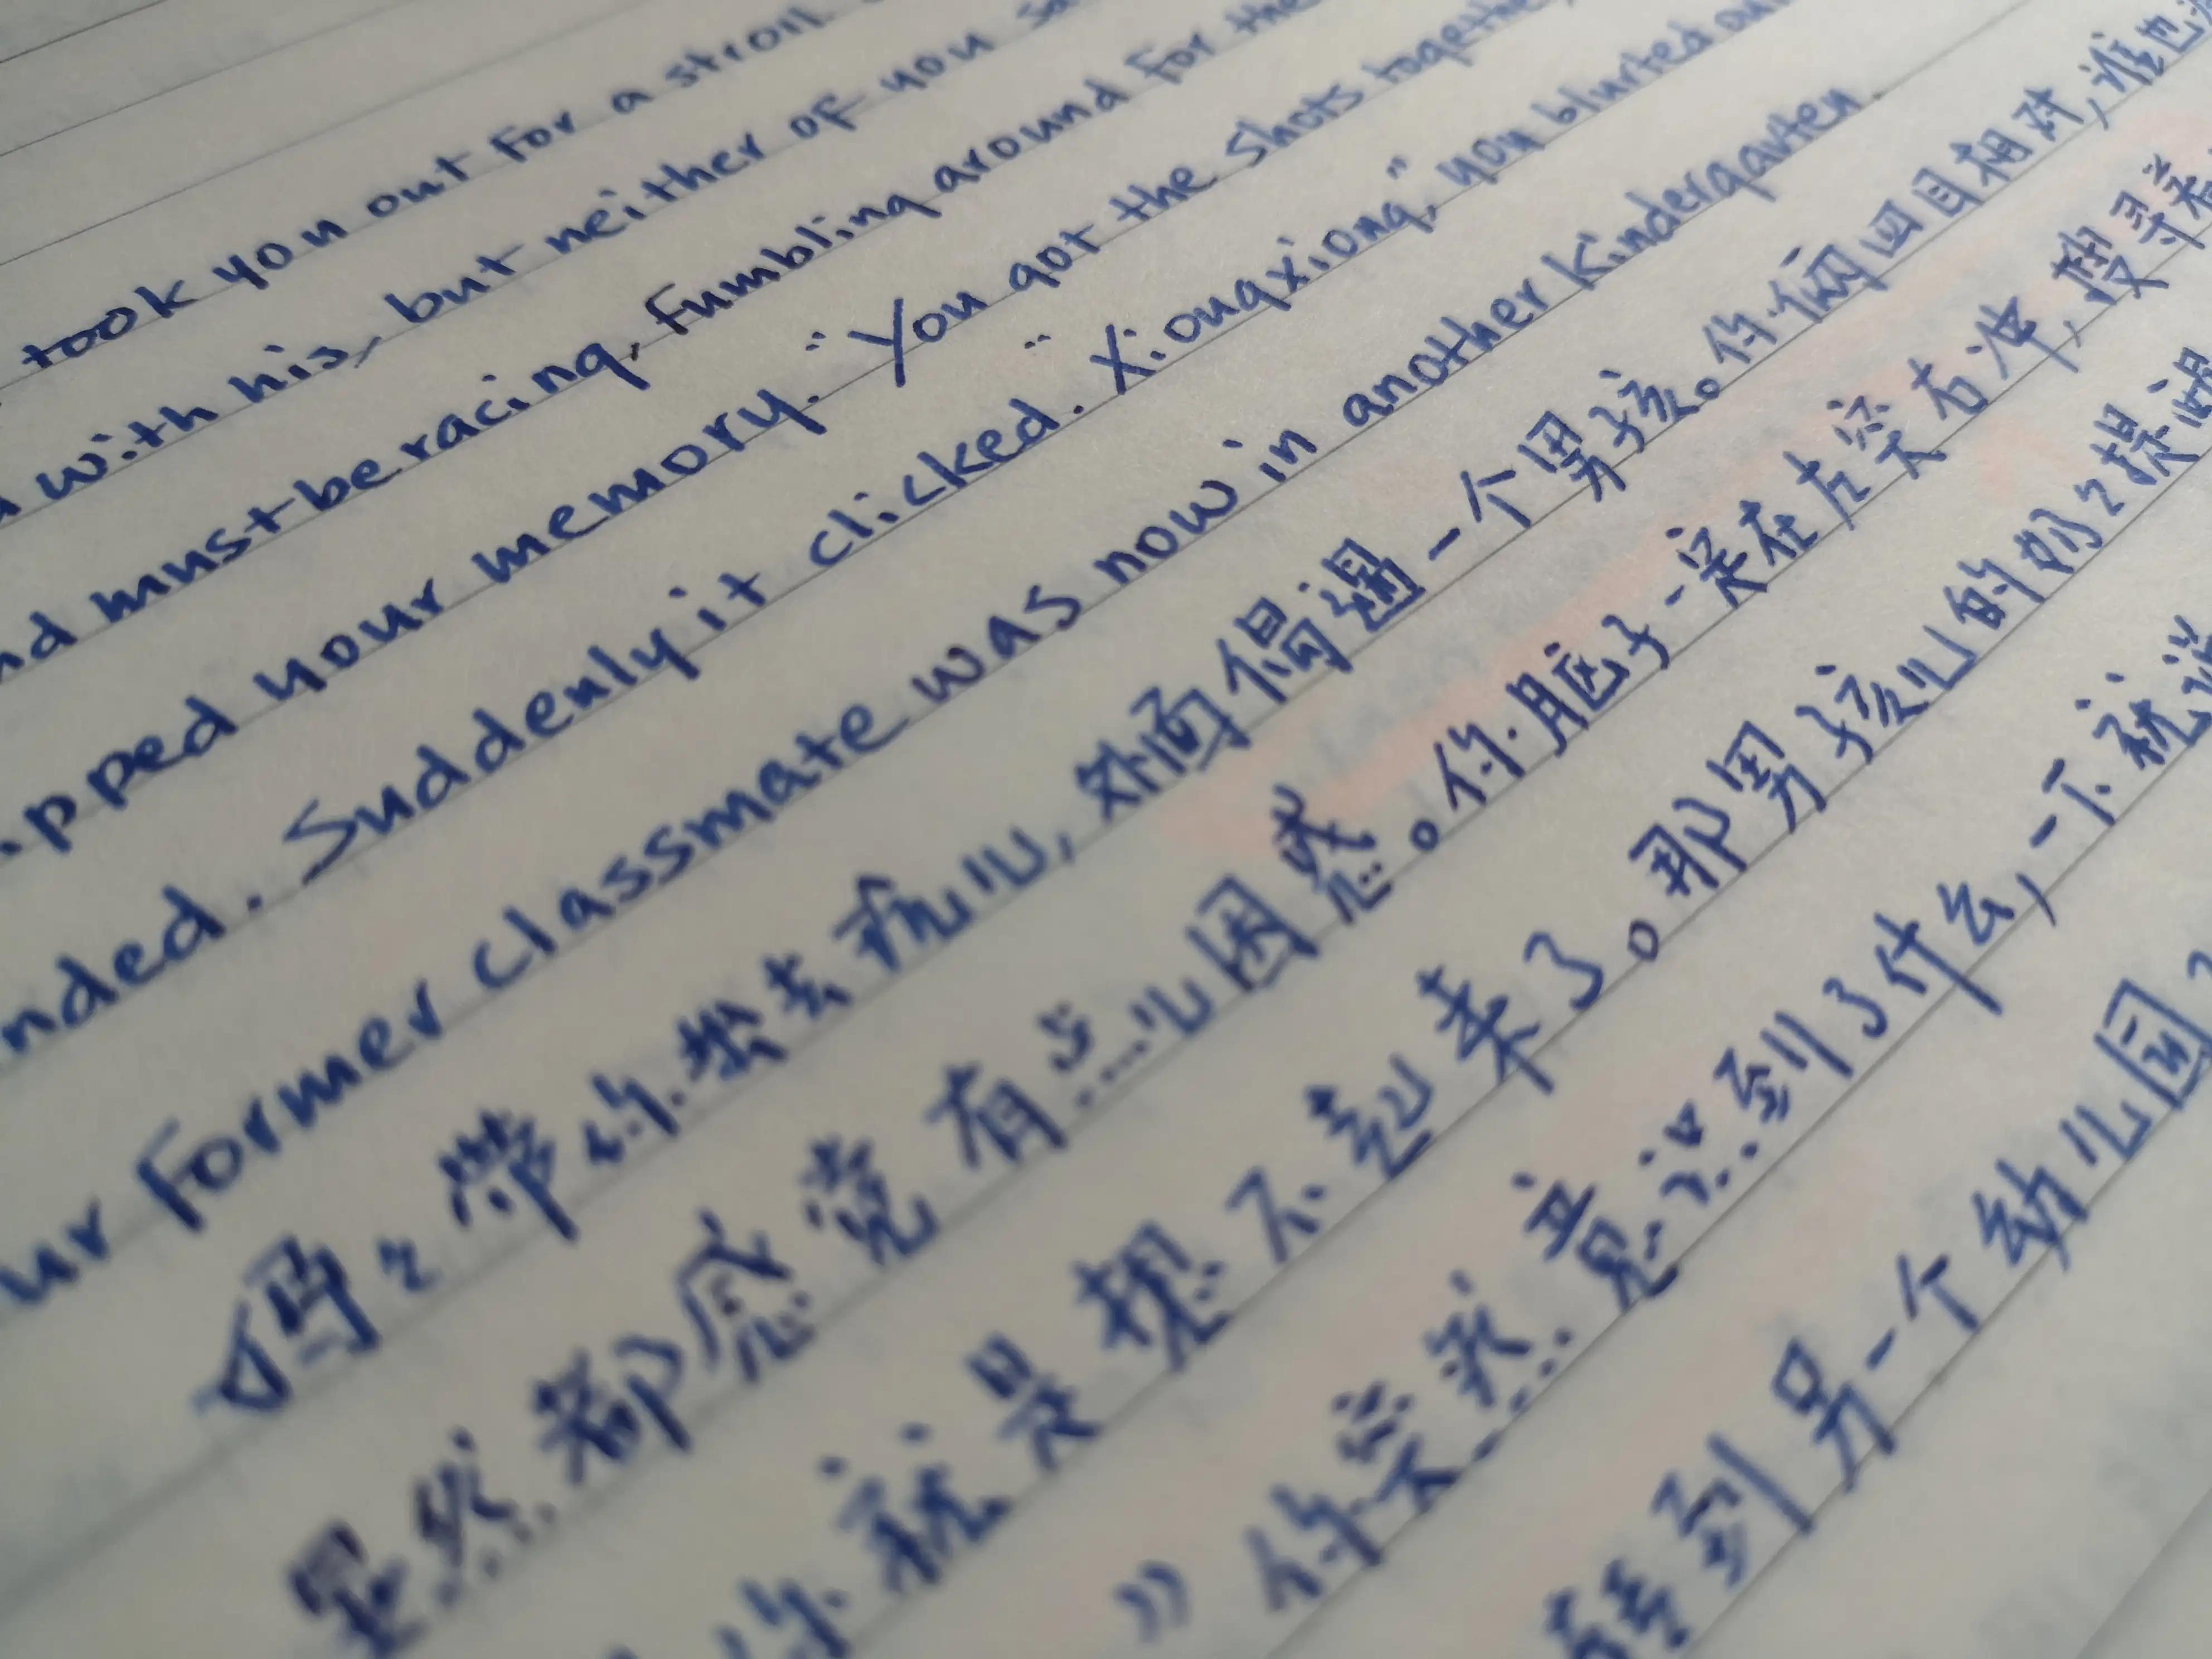 took you out for a stroll
with his, but neither of you
must be racing, fumbling around for the
your memory. "You got the shots together,
Suddenly it clicked. "Xiongxiong," you blurted out
Former classmate was now in another kindergarten.
妈々带你出去玩儿,外面偶遇一个男孩。你俩四目相对,谁也
显然都感觉有点儿困惑。你脑子一定在左突右冲,搜寻着
你就是想不起来了。那男孩儿的奶々提醒
”你突然意识到了什么,一下就
转到另一个幼儿园